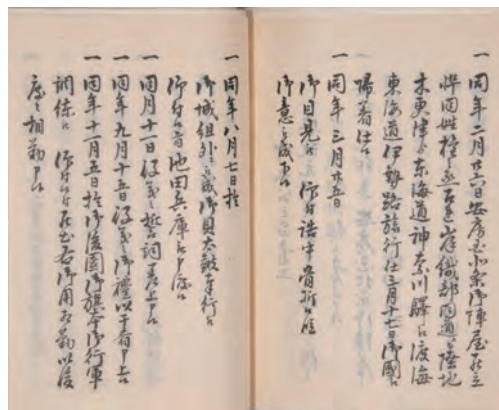 一同年二月廿六日安房国北条御陣屋出立
悴同姓 同道陸地
木更津ゟ東海道神奈川驛江渡海
東海道伊勢路旅行仕三月十七日御國江
帰着仕候
一同年三月廿五日
御目見被 仰付諸中骨折候段
御意被成下候
一同年八月七日於
御城組外被成御貝太鼓奉行被
仰付旨池田兵庫被申渡候
一同月十一日役義之誓詞差上申候
一同年九月十五日役義之御禮以干肴申上候
一同年十一月五日於御後園御旗本御行軍
調練被 仰付 出右御用相勤以後
度々相勤申候